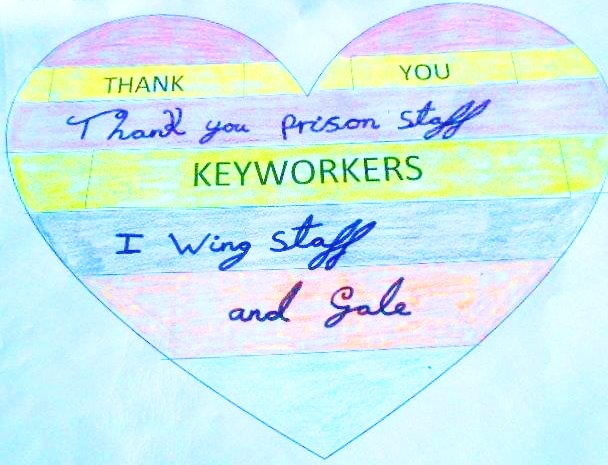 THANK YOU
Thank you prison staff
KEYWORKERS
I Wing staff
and Gale